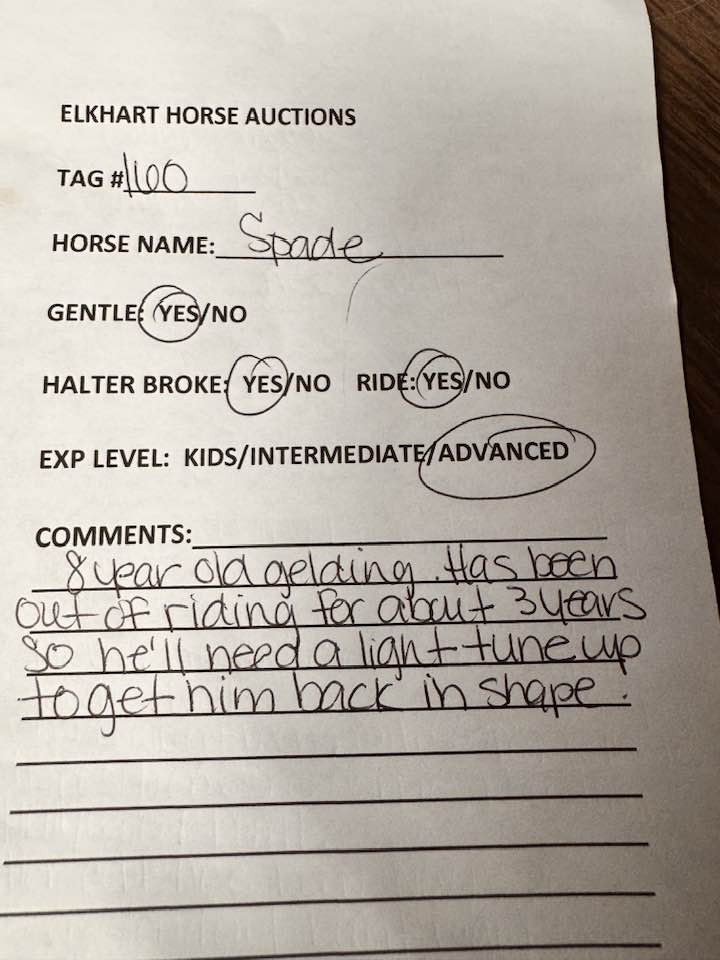 ELKHART HORSE AUCTIONS
TAG # 1160
HORSE NAME: Spade
GENTLE: YES/NO
HALTER BROKE: YES/NO RIDE: YES/NO
EXP LEVEL: KIDS/INTERMEDIATE/ADVANCED
COMMENTS:
8 year old gelding. Has been
out of riding for about 3 years
so he'll need a light tune up
to get him back in shape.